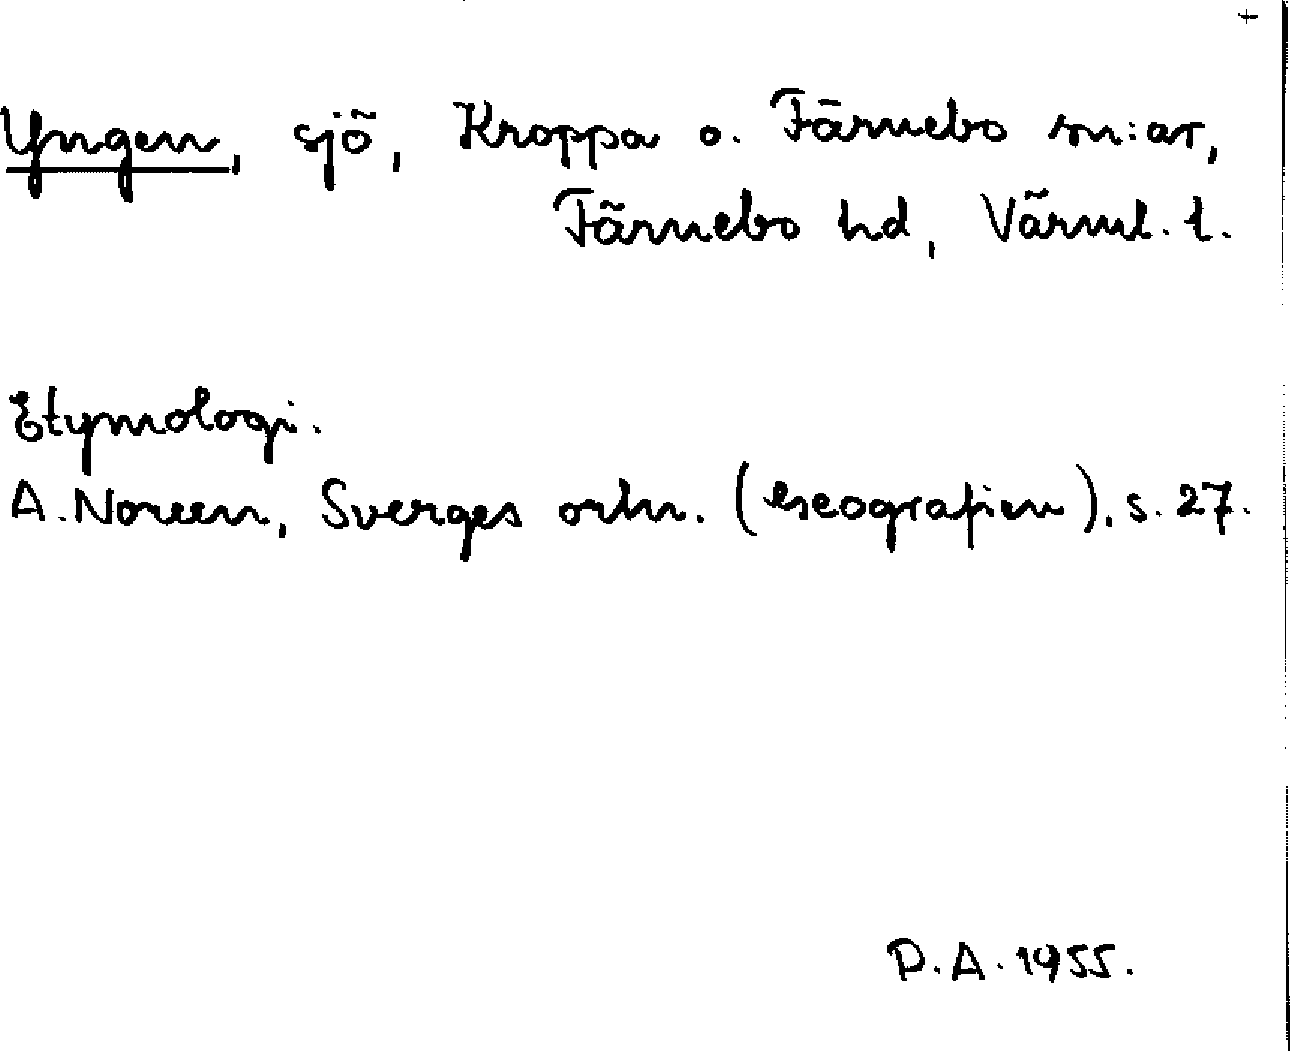 +
Yngen, sjö, Kroppa o. Färnebo sn:ar,
Färnebo hd, Värml. l.
Etymologi.
A. Noreen, Sverges ortn. (Geografien), s. 27.
D.A. 1955.